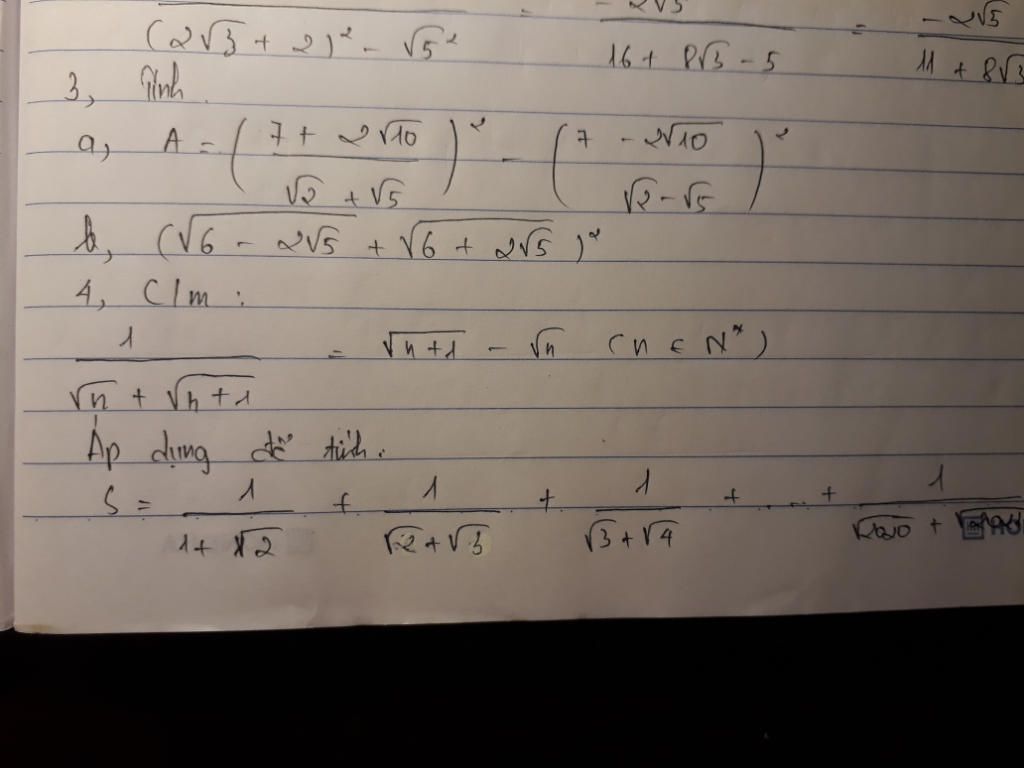 (2√3 + 2)² - √5² = -2√5 / (16 + 8√3 - 5) = -2√5 / (11 + 8√3
3, Tính
a, A = ((7 + 2√10) / (√2 + √5))² - ((7 - 2√10) / (√2 - √5))²
b, (√(6 - 2√5) + √(6 + 2√5))²
4, C/m :
1 / (√n + √(n+1)) = √(n+1) - √n (n ∈ N*)
Áp dụng để tính.
S = 1 / (1 + √2) + 1 / (√2 + √3) + 1 / (√3 + √4) + ... + 1 /